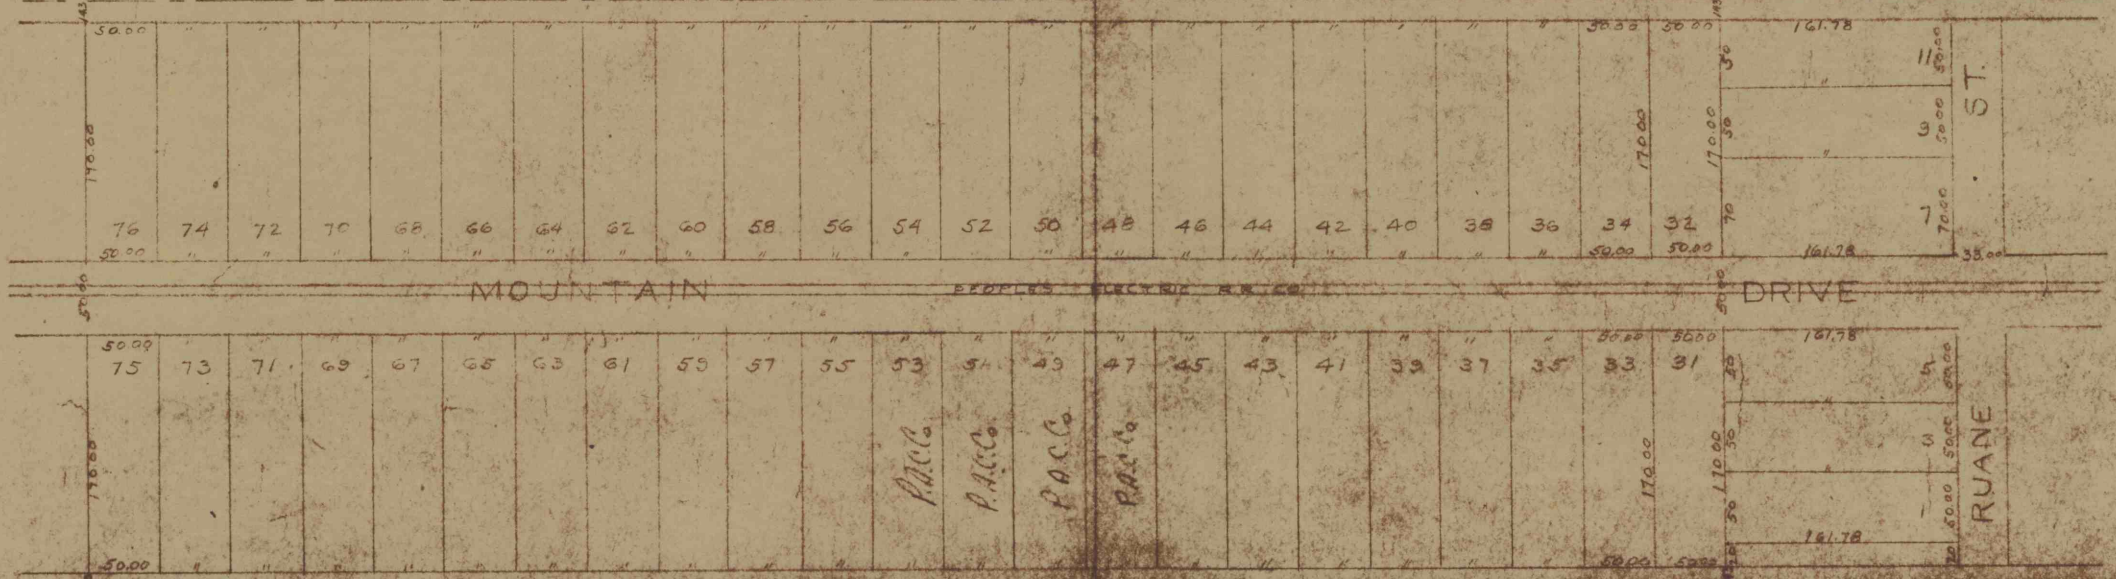 50.00 " " " " " " " " " " " " " " " " " " " " 50.00 50.00 161.78
50 11 50.00
170.00 170.00 170.00 50 9 50.00 ST.
"
70 7 70.00
76 74 72 70 68 66 64 62 60 58 56 54 52 50 48 46 44 42 40 38 36 34 32
50.00 " " " " " " " " " " " " " " " " " " " " 50.00 50.00 161.78 33.00
50.00 MOUNTAIN PEOPLES ELECTRIC R.R. CO. 50.00 DRIVE
50.00 " " " " " " " " " " " " " " " " " " " " 50.00 50.00 161.78
75 73 71 69 67 65 63 61 59 57 55 53 51 49 47 45 43 41 39 37 35 33 31
50 5 50.00
P.A.C.Co. P.A.C.Co. P.A.C.Co. P.A.C.Co.
170.00 170.00 170.00 50 3 50.00 RUANE
50 1 50.00
161.78
50.00 " " " " " " " " " " " " " " " " " " " " 50.00 50.00 20 20